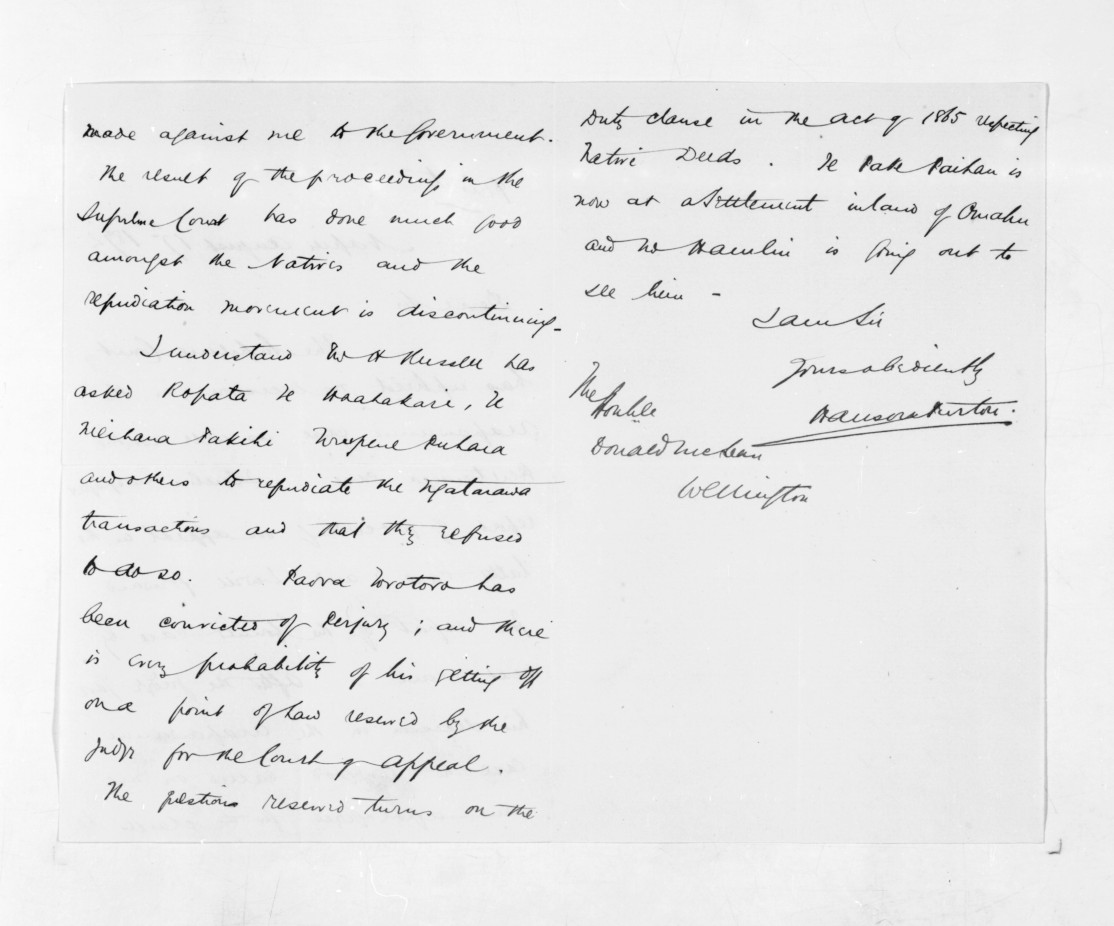 made against me to the Government.
The result of the proceedings in the
Supreme Court has done much good
amongst the Natives and the
repudiation movement is discontinuing -
I understand Mr H Russell has
asked Ropata Te Hoahakari, Te
Meihana Takihi Wrepene Puhara
and others to repudiate the Ngatarawa
transactions and that they refused
to do so. Paora Torotoro has
been convicted of Perjury ; and there
is every probability of his getting off
on a point of Law reserved by the
Judge for the Court of Appeal.
The questions reserved turns on the
Duty clause in the act of 1865 respecting
Native Deeds. Te is
now at a Settlement inland of Omahu
and Mr Hamlin is going out to
see him -
I am Sir
Yours obediently
Hanson Turton.
The Honble
Donald McLean
Wellington